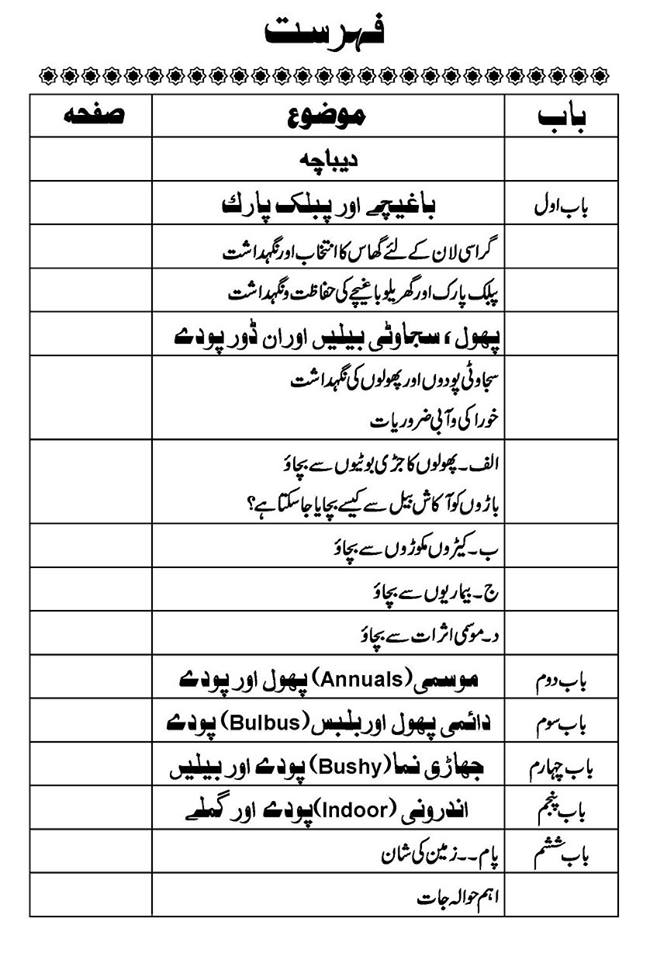 فہرست
باب موضوع صفحہ
دیباچہ
باب اول باغیچے اور پبلک پارک
گراسی لان کے لئے گھاس کا انتخاب اور نگہداشت
پبلک پارک اور گھریلو باغیچے کی حفاظت و نگہداشت
پھول، سجاوٹی بیلیں اور ان ڈور پودے
سجاوٹی پودوں اور پھولوں کی نگہداشت
خوراکی و آبی ضروریات
الف۔ پھولوں کا جڑی بوٹیوں سے بچاؤ
باڑوں کو آکاش بیل سے کیسے بچایا جا سکتا ہے؟
ب۔ کیڑوں مکوڑوں سے بچاؤ
ج۔ بیماریوں سے بچاؤ
د۔ موسمی اثرات سے بچاؤ
باب دوم موسمی (Annuals) پھول اور پودے
باب سوم دائمی پھول اور بلبس (Bulbus) پودے
باب چہارم جھاڑی نما (Bushy) پودے اور بیلیں
باب پنجم اندرونی (Indoor) پودے اور گملے
باب ششم پام۔۔ زمین کی شان
اہم حوالہ جات